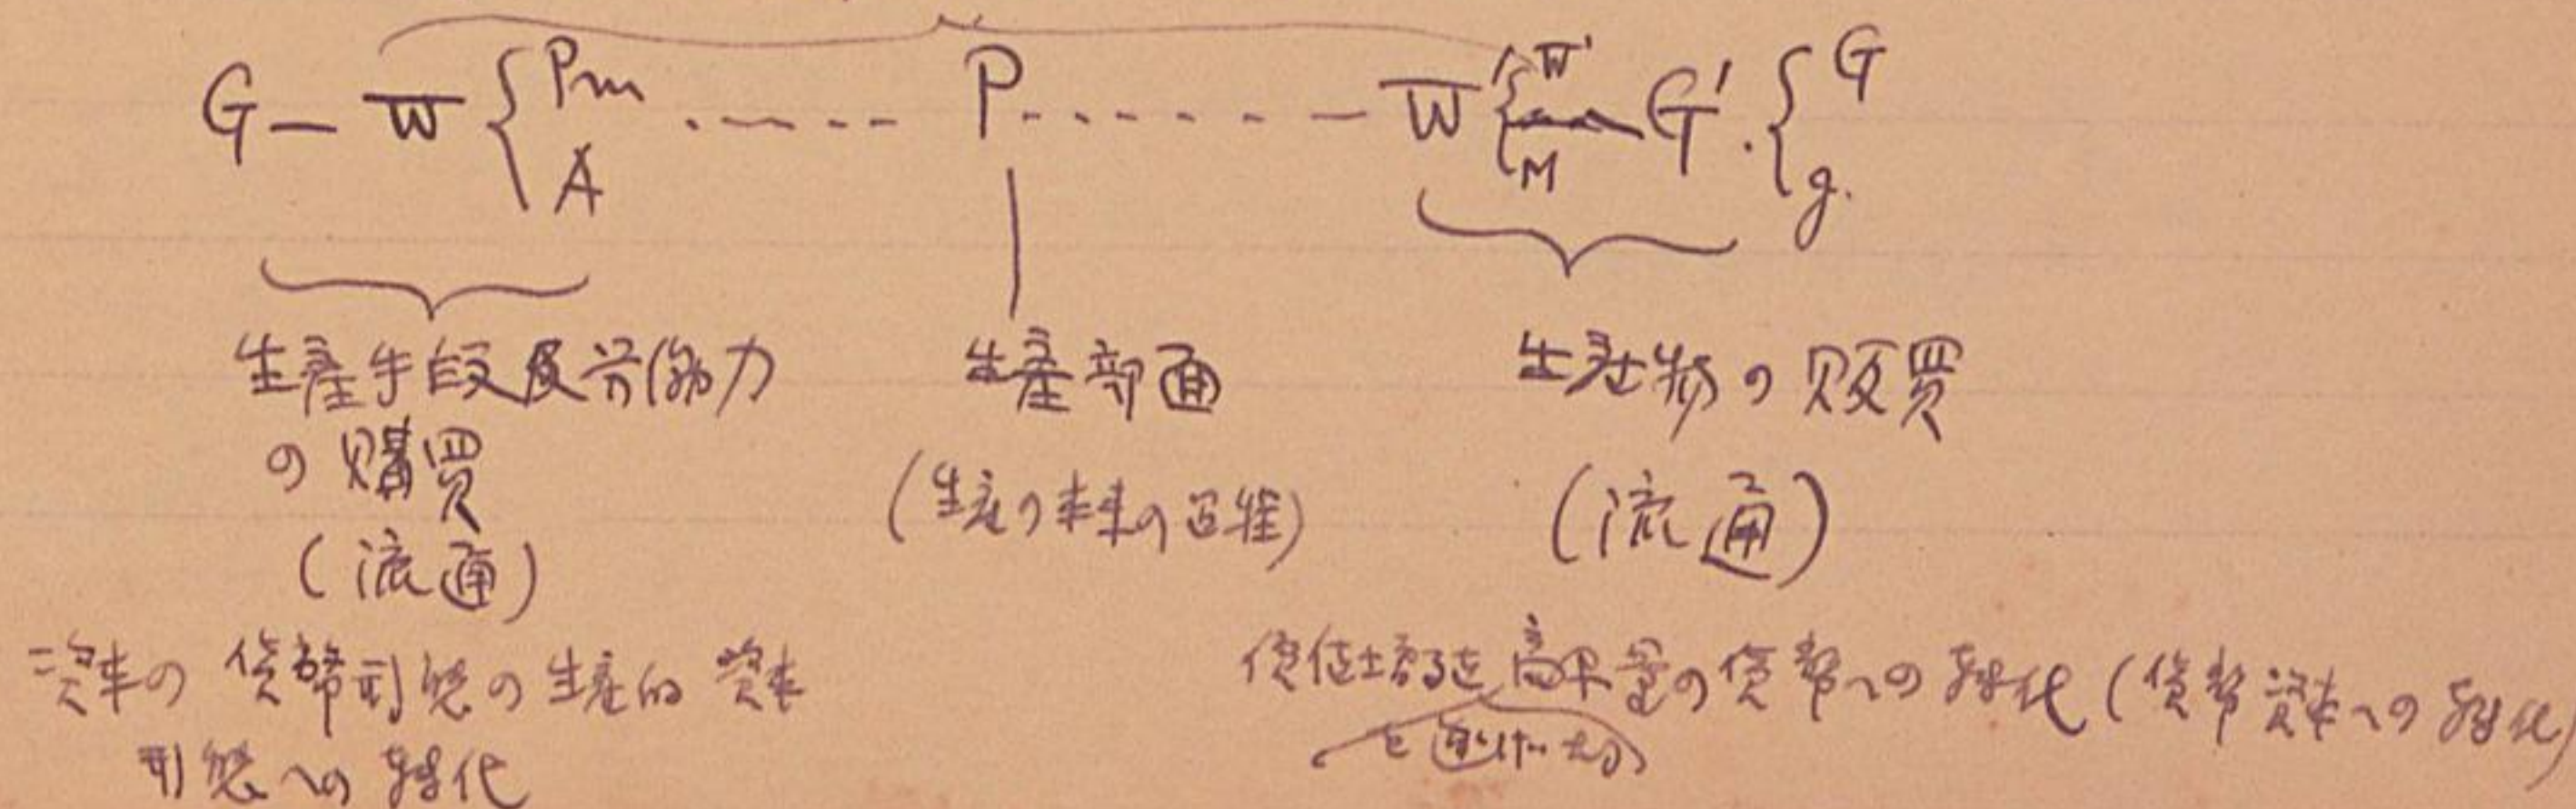 G — W { Pm A ・－－－－ P ・－－－－－ W' { W M — G'. { G g.
生産手段及労働力
の購買
(流通)
生産部面
(生産の本来の過程)
生産物の販買
(流通)
資本の貨幣形態の生産的資本
形態への転化
価値増殖を 量の貨幣への転化 (貨幣資本への転化)